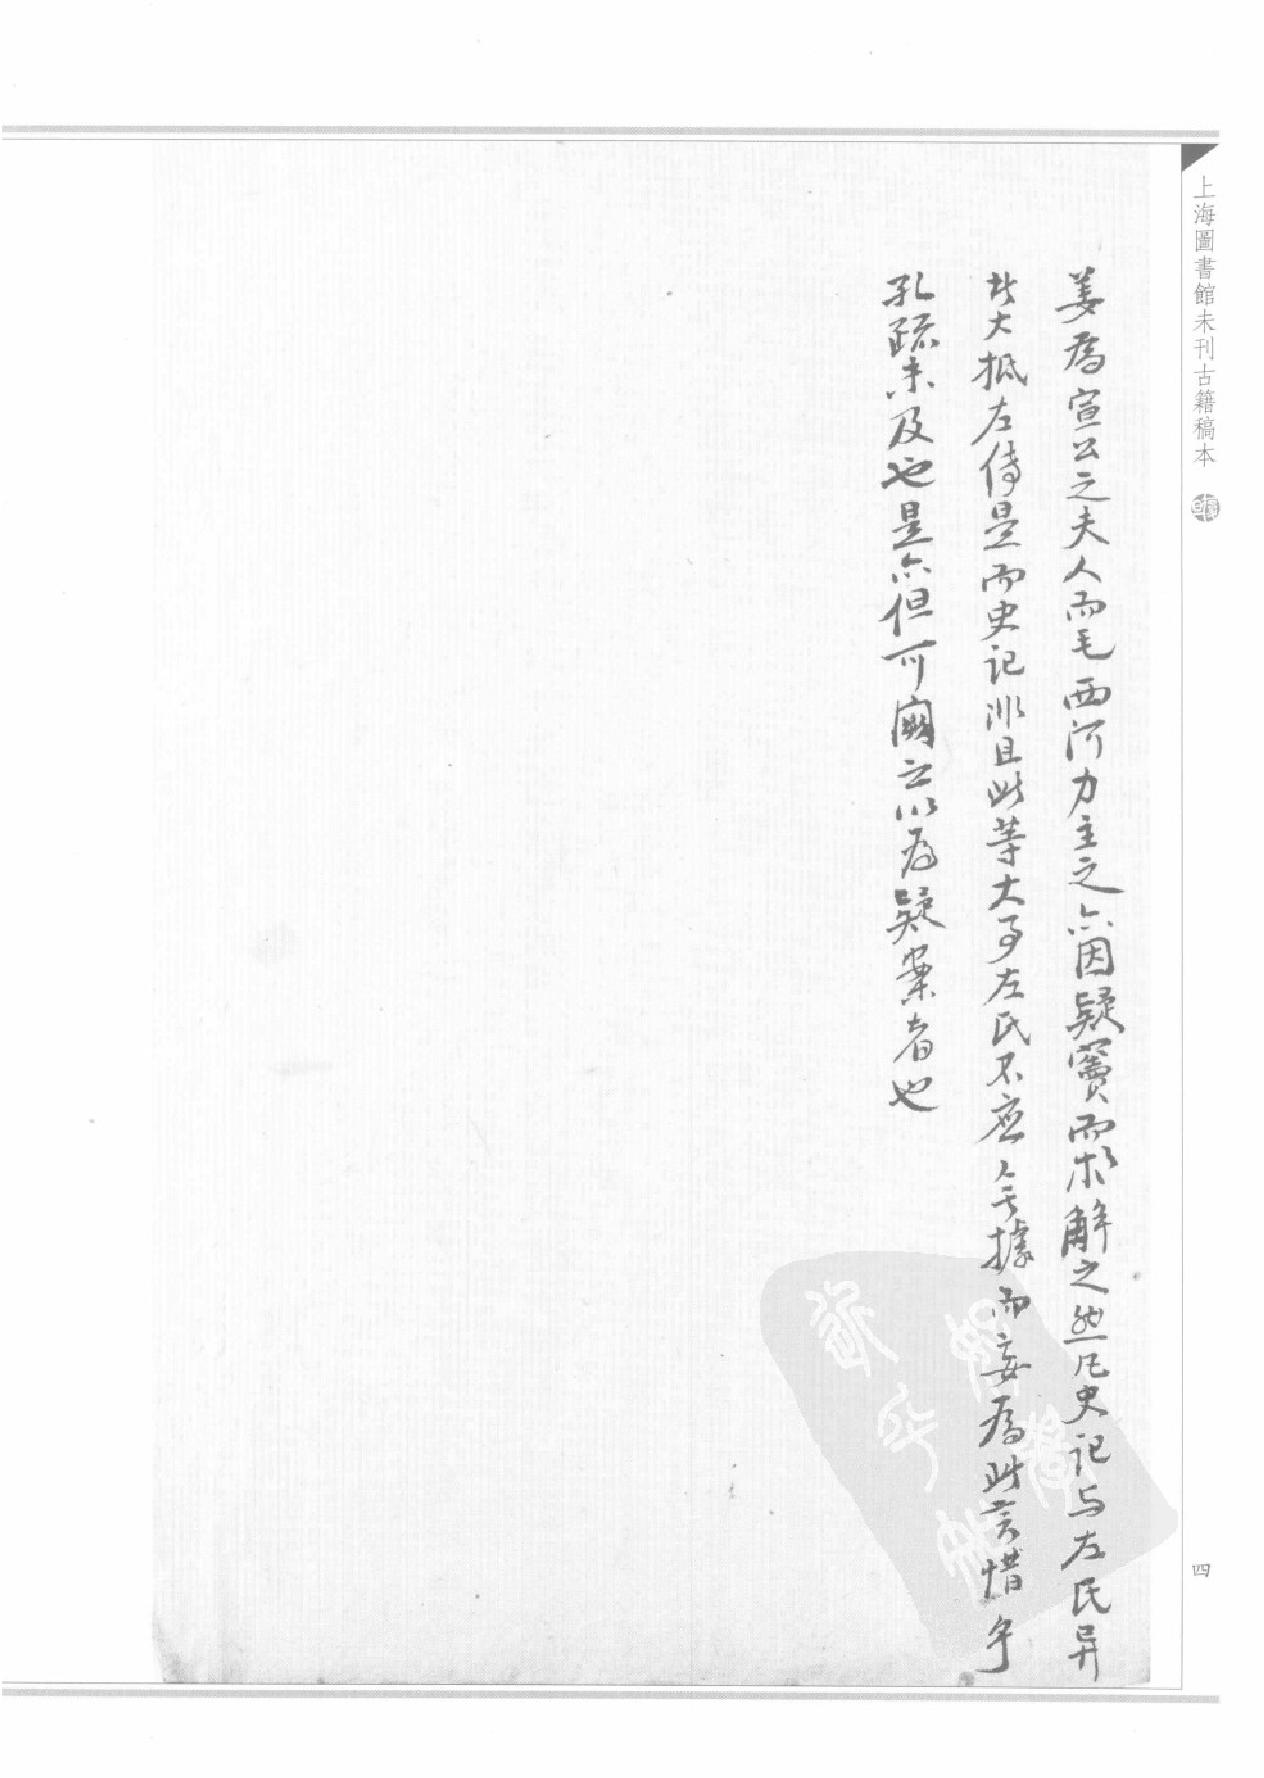 上海圖書館未刊古籍稿本
四
姜爲宣公之夫人而毛西河力主之亦因疑竇而求解之然凡史记与左氏异
此大抵左傳是而史记非且此等大事左氏不应無據而妄爲此言惜乎
孔疏未及也是亦但可闕之以为疑案者也